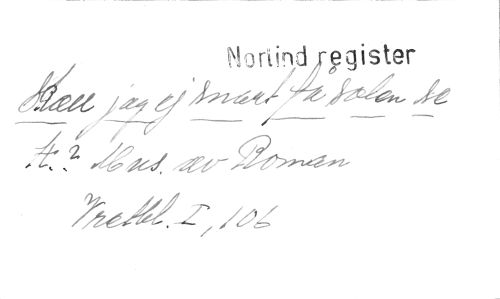 Norlind register
Skall jag ej snart få solen se
H.? Mus. av Roman
Vretbl. I, 106